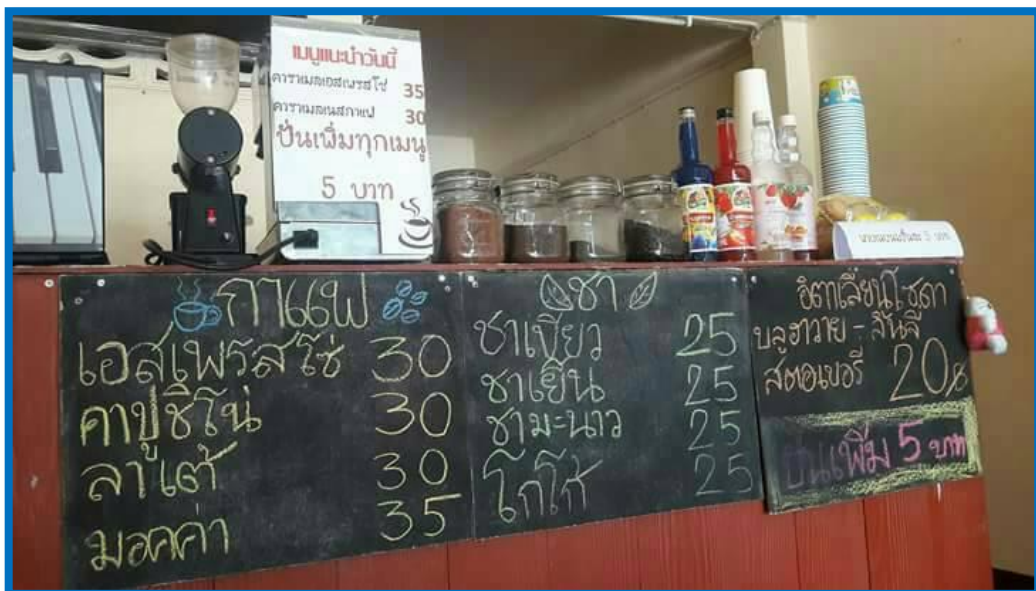 เมนูแนะนำวันนี้
คาราเมลเอสเพรสโซ่ 35
คาราเมลเนสกาแฟ 30
ปั่นเพิ่มทุกเมนู
5 บาท
กาแฟ
เอสเพรสโซ่ 30
คาปูชิโน่ 30
ลาเต้ 30
มอคค่า 35
ชา
ชาเขียว 25
ชาเย็น 25
ชามะนาว 25
โกโก้ 25
อิตาเลี่ยนโซดา
บลูฮาวาย - ลิ้นจี่
สตอเบอรี่ 20
ปั่นเพิ่ม 5 บาท
5 บาท